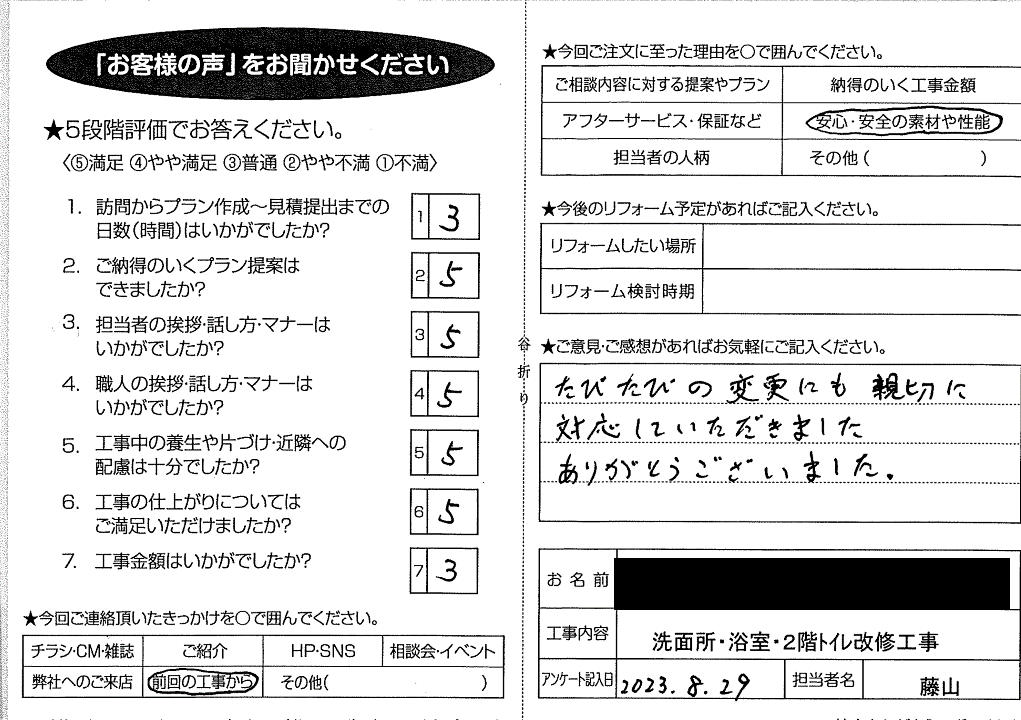 「お客様の声」をお聞かせください
★5段階評価でお答えください。
〈⑤満足 ④やや満足 ③普通 ②やや不満 ①不満〉
1. 訪問からプラン作成〜見積提出までの
日数(時間)はいかがでしたか?
1 3
2. ご納得のいくプラン提案は
できましたか?
2 5
3. 担当者の挨拶・話し方・マナーは
いかがでしたか?
3 5
4. 職人の挨拶・話し方・マナーは
いかがでしたか?
4 5
5. 工事中の養生や片づけ・近隣への
配慮は十分でしたか?
5 5
6. 工事の仕上がりについては
ご満足いただけましたか?
6 5
7. 工事金額はいかがでしたか?
7 3
★今回ご連絡頂いたきっかけを○で囲んでください。
チラシ・CM・雑誌 ご紹介 HP・SNS 相談会・イベント
弊社へのご来店 前回の工事から その他( )
谷折り
★今回ご注文に至った理由を○で囲んでください。
ご相談内容に対する提案やプラン 納得のいく工事金額
アフターサービス・保証など 安心・安全の素材や性能
担当者の人柄 その他( )
★今後のリフォーム予定があればご記入ください。
リフォームしたい場所
リフォーム検討時期
★ご意見・ご感想があればお気軽にご記入ください。
たびたびの変更にも親切に
対応していただきました
ありがとうございました。
お名前
工事内容 洗面所・浴室・2階トイレ改修工事
アンケート記入日 2023.8.29 担当者名 藤山